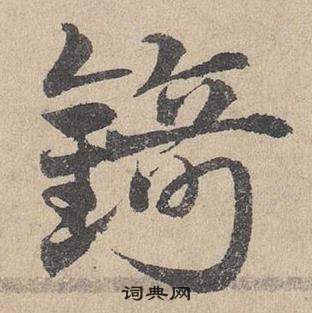 錡
词典网